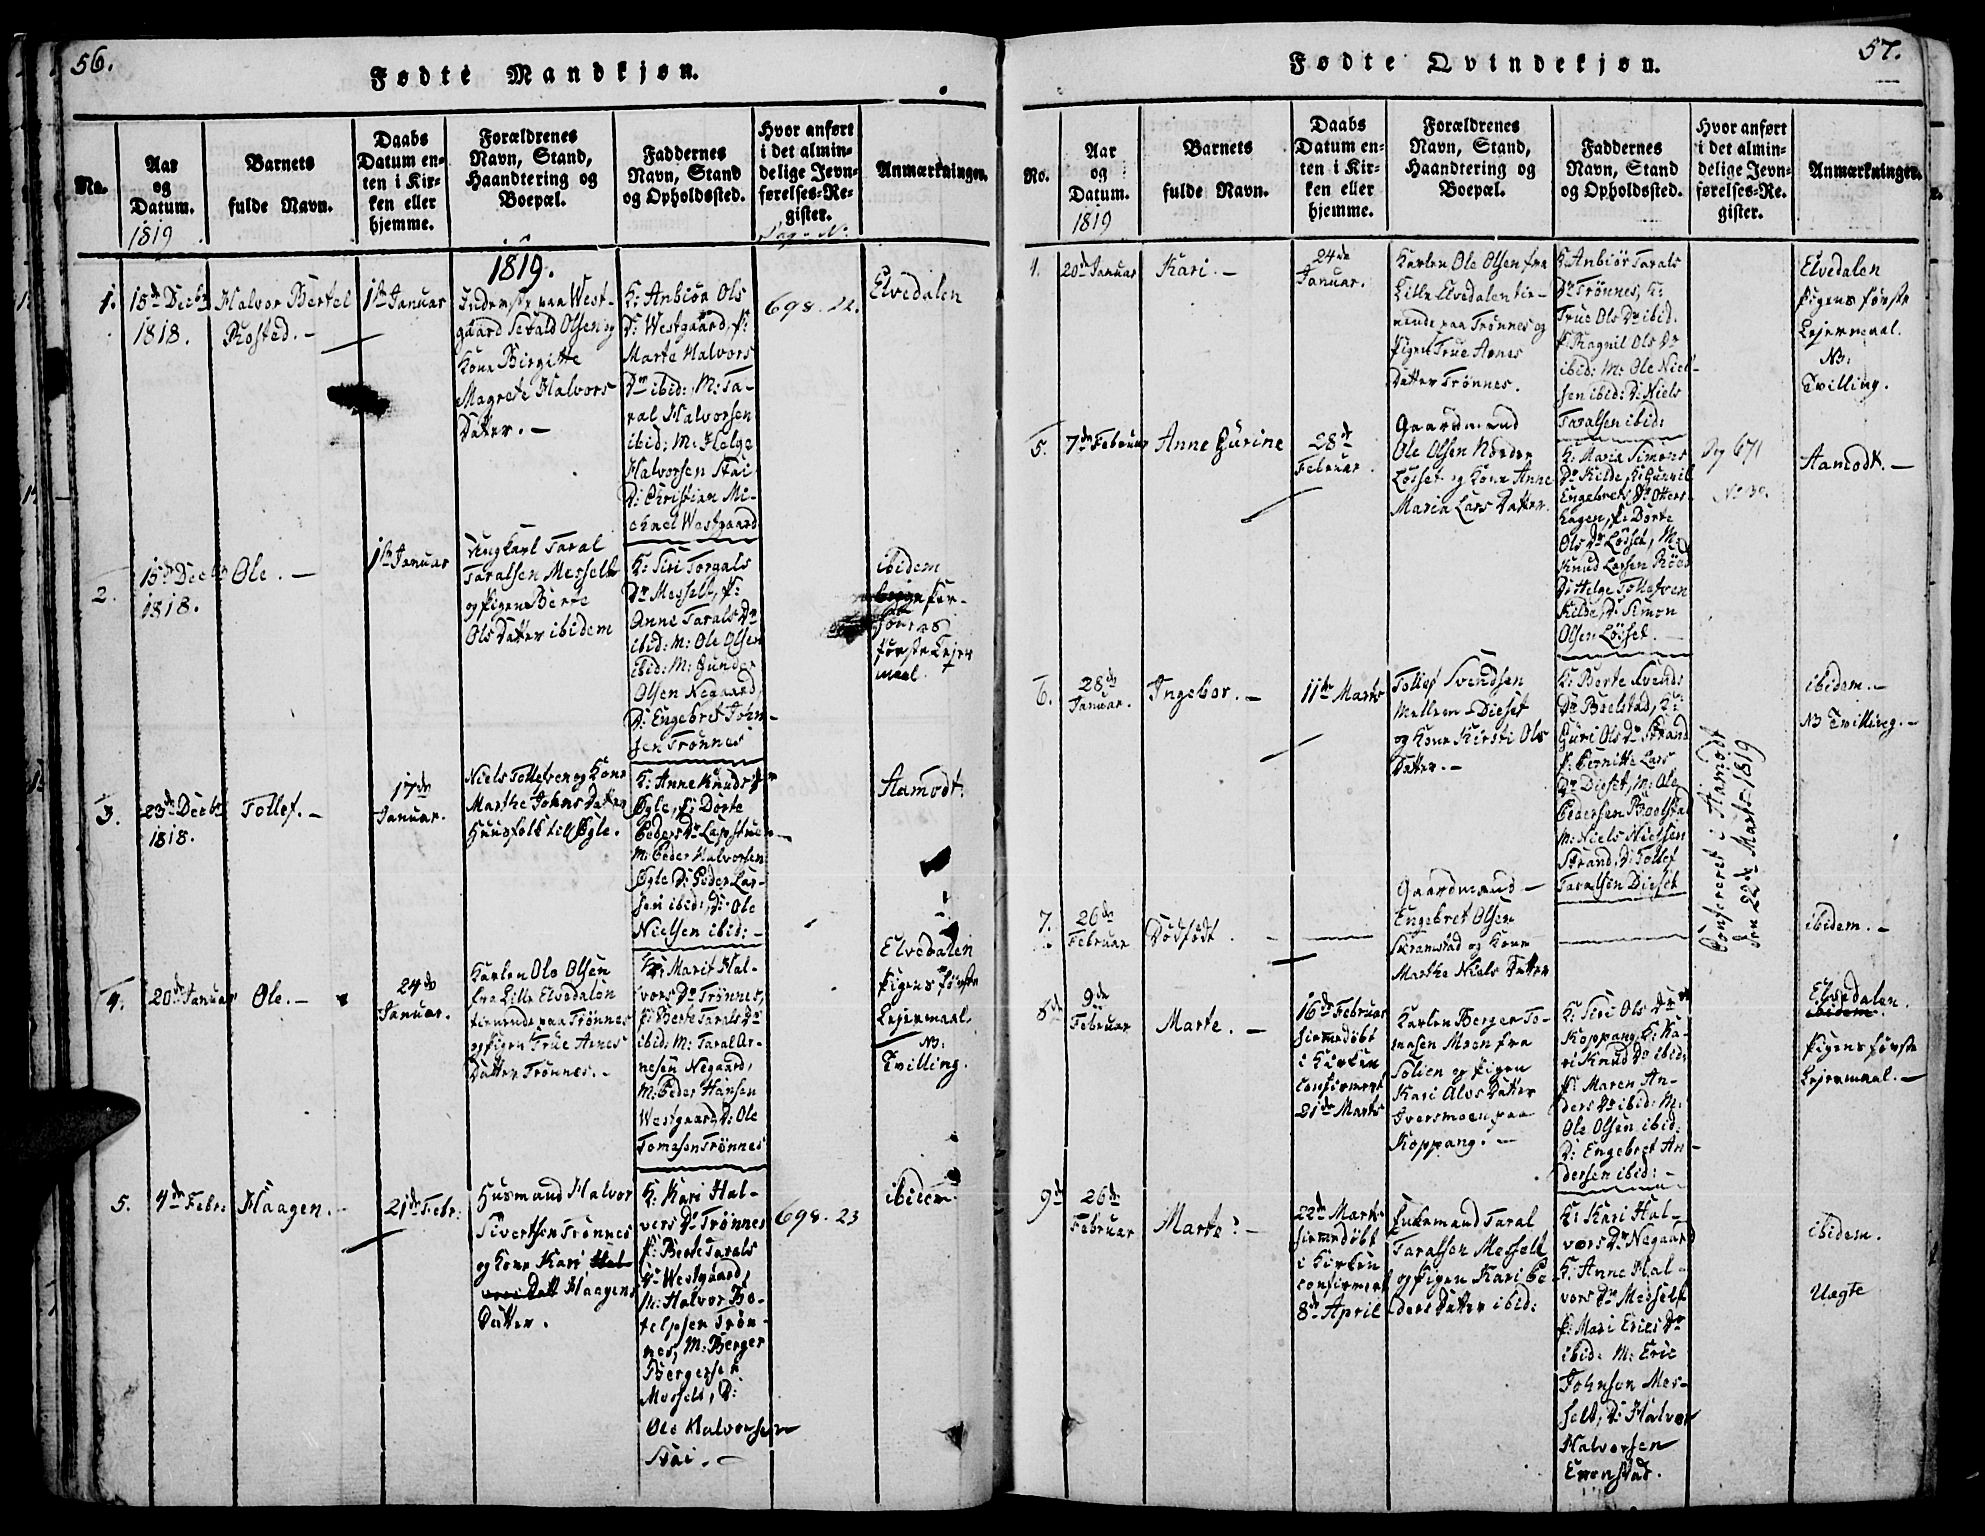 56.
Fødte Mandkjøn.
No.
Aar
og
Datum.
1819
Barnets
fulde Navn.
Daabs
Datum en-
ten i Kir-
ken eller
hjemme.
Forældrenes
Navn, Stand,
Haandtering og
Boepæl.
Faddernes
Navn, Stand
og Opholdssted.
Hvor anført
i det almin-
delige Jevn-
førelses-Re-
gister.
Pag. No.
Anmærkninger.
1819.
1.
15de Decbr
1818.
Halvor Bertel
Rosted. -
1ste Januar
Inderste paa West-
gaard Sevald Olsen og
Kone Birgitte
Magrete Halvors
Datter. -
K: Anbiør Ols
D: Westgaard, P:
Marte Halvors
Dr ibid: M: Ta-
ral Halvorsen
ibid: M: Helge
Halvorsen Stai
D: Christian Mi-
chael Westgaard
698. 22.
Elvedalen
2.
15de Decbr
1818.
Ole. -
1ste Januar
Ungkarl Taral
Taralsen Messelt
og Pigen Berte
Ols Datter ibidem
K: Siri Torgals
Dr Messelt, P:
Anne Tarals Dr
ibid: M: Ole Olsen
ibid: M: Gunder
Olsen Negaard,
D: Engebret John-
sen Trønnes
ibidem
begge Per-
soners
første Lejer
maal.
3.
23de Decbr
1818.
Tollef. -
17de
Januar.
Niels Tollefsen og Kone
Marthe Johns Datter
Huusfolk til Øgle.
K: Anne Knuds Dr
Øgle, P: Dorte
Peders Dr Løpstuen
M: Peder Halvorsen
Øgle D: Peder Lar-
sen ibid: D: Ole
Nielsen ibid: -
Aamodt.
4.
20de Januar
Ole. -
24de
Januar.
Karlen Ole Olsen
fra Lille Elvedalen
tienende paa Trønnes
og Pigen True Arnes
Datter Trønnes. -
K: Marit Hal-
vors Dr Trønnes,
P: Berte Tarals Dr
ibid: M: Taral Ar-
nesen Negaard,
M: Peder Hansen
Westgaard D: Ole
Tomesen Trønnes
Elvedalen
Pigens første
Lejermaal.
NB:
Tvilling.
5.
4de Febr:
Haagen. -
21de Febr:
Husmand Halvor
Sivertsen Trønnes
og Kone Kari Hal-
vors Datt Haagens
Datter.
K: Kari Hal-
vors Dr Trønnes
P: Berte Tarals
Dr Westgaard,
M: Halvor Bo-
telpsen Trøn-
nes, M: Berger
Bergersen
Messelt, D:
Ole Halvorsen
Stai. -
698. 23
ibidem.
57.
Fødte Qvindekjøn.
No.
Aar
og
Datum.
1819
Barnets
fulde Navn.
Daabs
Datum en-
ten i Kir-
ken eller
hjemme.
Forældrenes
Navn, Stand,
Haandtering og
Boepæl.
Faddernes
Navn, Stand
og Opholdssted.
Hvor anført
i det almin-
delige Jevn-
førelses-Re-
gister.
Anmærkninger.
4.
20de Januar
Kari. -
24de
Januar.
Karlen Ole Olsen fra
Lille Elvedalen tie-
nende paa Trønnes og
Pigen True Arnes
Datter Trønnes.
K: Anbiør Tarals
Dr Trønnes, K:
True Ols Dr ibid.
P: Ragnil Ols Dr
ibid: M: Ole Niel-
sen ibid: D: Niels
Taralsen ibid:
Elvedalen
Pigens første
Lejermaal.
NB:
Tvilling.
5.
7de Februar
Anne Gurine
28de
Februar.
Gaardmand
Ole Olsen Nordre
Løsset og Kone Anne
Maria Lars Datter.
K: Maria Simons
Dr Kilde, K: Gunnil
Engebrets Dr Otters-
hagen, P: Dorte
Ols Dr Løsset, M:
Knud Larsen Røed
D: Helge Tollefsen
Kilde, D: Simon
Olsen Løsset. -
Pag 671
No 30.
Aamodt. -
6.
28de
Januar.
Ingebor. -
11te Marts
Tollef Svendsen
Mellem-Dieset
og Kone Kirsti Ols
Datter. -
K: Berte Svends
Dr Boelstad, K:
Guri Ols Dr Strand
P: Pernitte Lars
Dr Dieset, M: Ole
Pedersen Boelstad
M: Niels Nielsen
Strand, D: Tollef
Taralsen Dieset
Confereret i Aamodt
den 22de Marts 1819
ibidem. -
NB Tvilling. -
7.
26de
Februar
Dødfødt.
Gaardmand -
Engebret Olsen
Skramstad og Kone
Marthe Niels Datter
ibidem. -
8de
9de
Februar
Marte. -
16de Februar
hiemedøbt
i Kirken
confirmert
21de Marts
Karlen Berger To-
masen Moen fra
Solien og Pigen
Kari Alvs Datter
Iversmoen paa
Koppang. -
K: Siri Ols Dr
Koppang, K: Ka-
ri Knuds Dr ibid:
P: Maren An-
ders Dr ibid: M:
Ole Olsen ibid:
D: Engebret An-
dersen ibid: -
Elvedalen.
ibidem.
Pigens første
Lejermaal. -
9de
26de
Februar
Marte: -
22de Marts
hiemedøbt
i Kirken
confirmert
8de April
Enkemand Taral
Taralsen Messelt
og Pigen Kari Pe-
ders Datter ibid:
K: Kari Hal-
vors Dr Negaard
K: Anne Hal-
vors Dr Messelt
P: Mari Erics Dr
ibid: M: Eric
Johnsen Mes-
selt, D: Halvor
Halvorsen
Evenstad.
ibidem.
Uægte